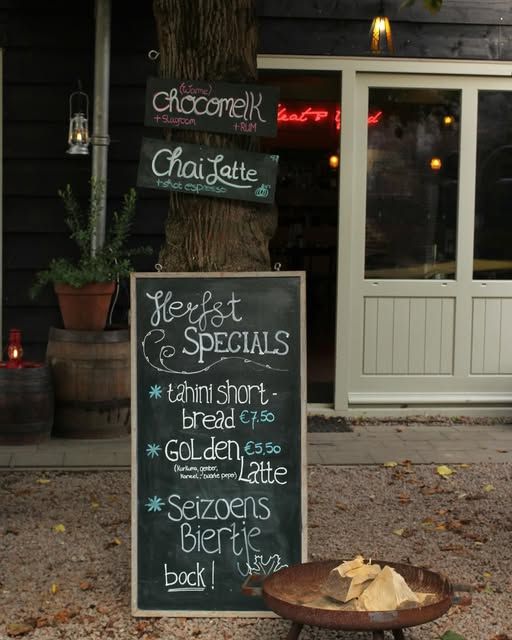 (warme)
chocomelk
+ slagroom
+ RUM
Chai Latte
+ shot espresso
Herfst
SPECIALS
tahini short-
bread €7,50
GOLDEN €5,50
(kurkuma, gember,
kaneel, zwarte peper)
Latte
Seizoens
Biertje
bock!